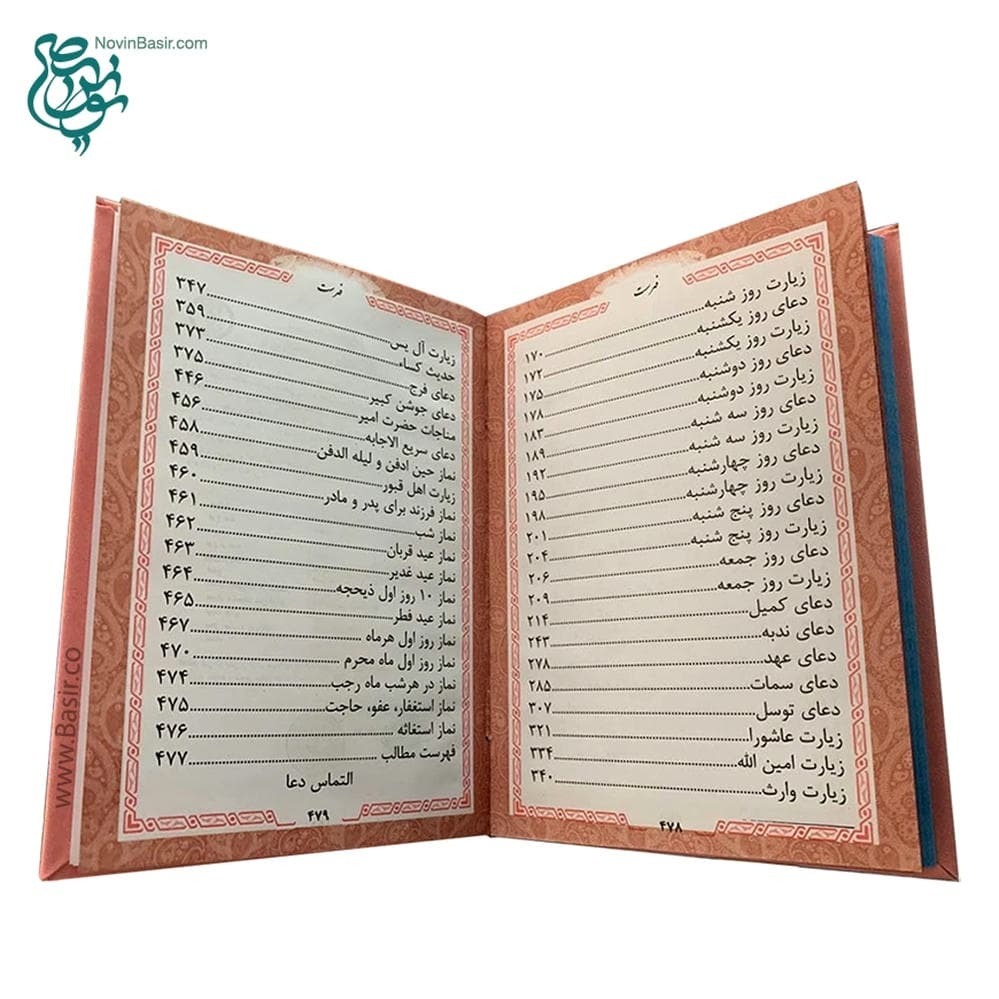 NovinBasir.com
فهرست
زیارت روز شنبه..........۱۷۰
دعای روز یکشنبه..........۱۷۲
زیارت روز یکشنبه..........۱۷۵
دعای روز دوشنبه..........۱۷۸
زیارت روز دوشنبه..........۱۸۳
دعای روز سه شنبه..........۱۸۹
زیارت روز سه شنبه..........۱۹۲
دعای روز چهارشنبه..........۱۹۵
زیارت روز چهارشنبه..........۱۹۸
دعای روز پنج شنبه..........۲۰۱
زیارت روز پنج شنبه..........۲۰۴
دعای روز جمعه..........۲۰۶
زیارت روز جمعه..........۲۰۹
دعای کمیل..........۲۱۴
دعای ندبه..........۲۴۳
دعای عهد..........۲۷۸
دعای سمات..........۲۸۵
دعای توسل..........۳۰۷
زیارت عاشورا..........۳۲۱
زیارت امین الله..........۳۳۴
زیارت وارث..........۳۴۰
۴۷۸
فهرست
زیارت آل یس..........۳۴۷
حدیث کساء..........۳۵۹
دعای فرج..........۳۷۳
دعای جوشن کبیر..........۳۷۵
مناجات حضرت امیر..........۴۴۶
دعای سریع الاجابه..........۴۵۶
نماز حین ادفن و لیله الدفن..........۴۵۸
زیارت اهل قبور..........۴۵۹
نماز فرزند برای پدر و مادر..........۴۶۰
نماز شب..........۴۶۱
نماز عید قربان..........۴۶۲
نماز عید غدیر..........۴۶۳
نماز ۱۰ روز اول ذیحجه..........۴۶۴
نماز عید فطر..........۴۶۵
نماز روز اول هرماه..........۴۶۷
نماز روز اول ماه محرم..........۴۷۰
نماز در هرشب ماه رجب..........۴۷۴
نماز استغفار، عفو، حاجت..........۴۷۵
نماز استغاثه..........۴۷۶
فهرست مطالب..........۴۷۷
التماس دعا
۴۷۹
www.Basir.co